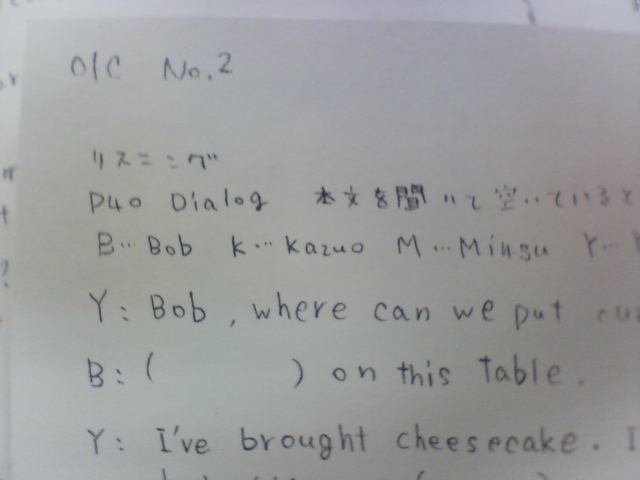 O/C No.2
リスニング
P40 Dialog 本文を聞いて空いていると
B…Bob K…Kazuo M…Mingu Y…
Y: Bob, where can we put
B: ( ) on this table.
Y: I've brought cheesecake. I